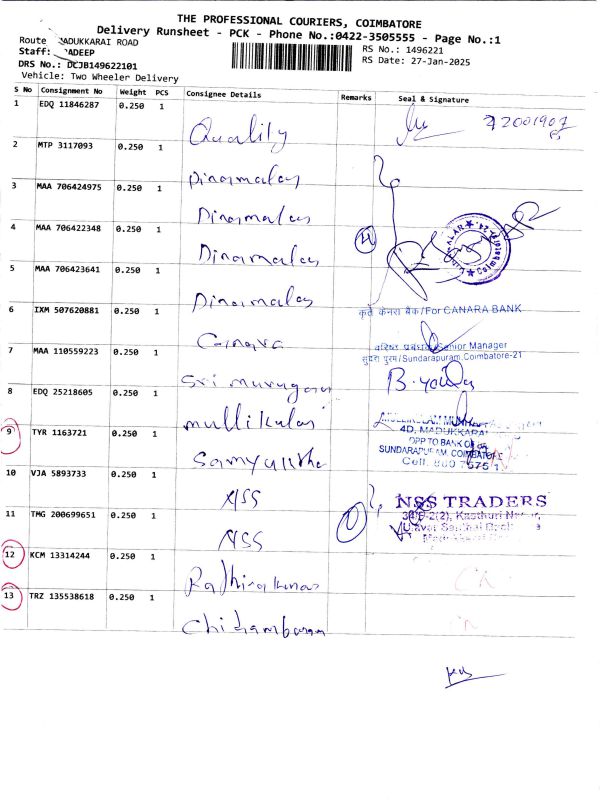 THE PROFESSIONAL COURIERS, COIMBATORE
Delivery Runsheet - PCK - Phone No.:0422-3505555 - Page No.:1
Route ADUKKARAI ROAD
RS No.: 1496221
Staff: ADEEP
RS Date: 27-Jan-2025
DRS No.: DCJB149622101
Vehicle: Two Wheeler Delivery
S No Consignment No Weight PCS Consignee Details Remarks Seal & Signature
1 EDQ 11846287 0.250 1 Quality
2 MTP 3117093 0.250 1 Dinamalar
3 MAA 706424975 0.250 1 Dinamalar
4 MAA 706422348 0.250 1 Dinamalar
5 MAA 706423641 0.250 1 Dinamalar
कृते केनरा बैंक/For CANARA BANK
6 IXM 507620881 0.250 1 Canara
वरिष्ठ प्रबंधक/Senior Manager
सुंदरा पुरम/Sundarapuram,Coimbatore-21
7 MAA 110559223 0.250 1 Sri murugan
8 EDQ 25218605 0.250 1 mullikulai
4D, MADUKKARAI
OPP TO BANK OF
SUNDARAPURAM, COIMBATORE
9 TYR 1163721 0.250 1 Samyuktha
10 VJA 5893733 0.250 1 NSS
NSS TRADERS
11 TMG 200699651 0.250 1 NSS
12 KCM 13314244 0.250 1 Radhirakumar
13 TRZ 135538618 0.250 1 Chidambaram